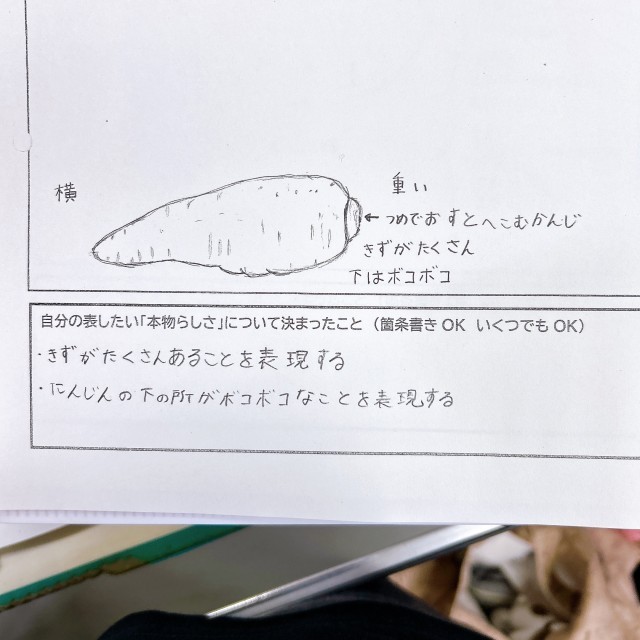 横
重い
←つめでおすとへこむかんじ
きずがたくさん
下はボコボコ
自分の表したい「本物らしさ」について決まったこと（箇条書きOK いくつでもOK）
・きずがたくさんあることを表現する
・にんじんの下の所がボコボコなことを表現する